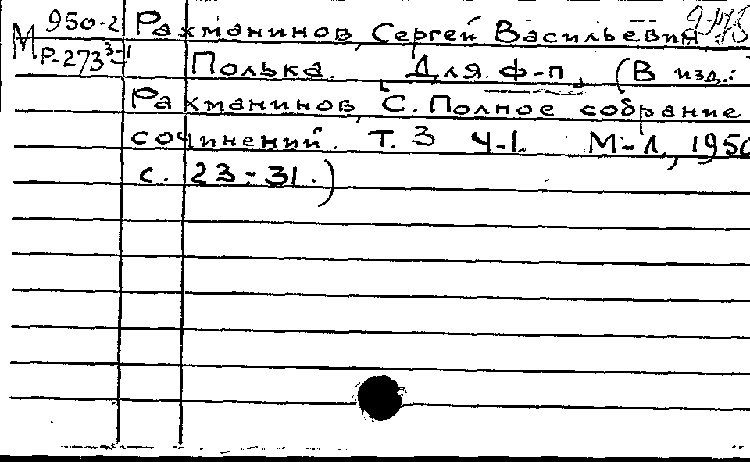 950-2 Рахманинов, Сергей Васильевич
М Р-273 3-1 Полька. Для ф-п. (В изд.:
Рахманинов, С. Полное собрание
сочинений. Т. 3 Ч-1. М-Л, 1950
с. 23-31.)